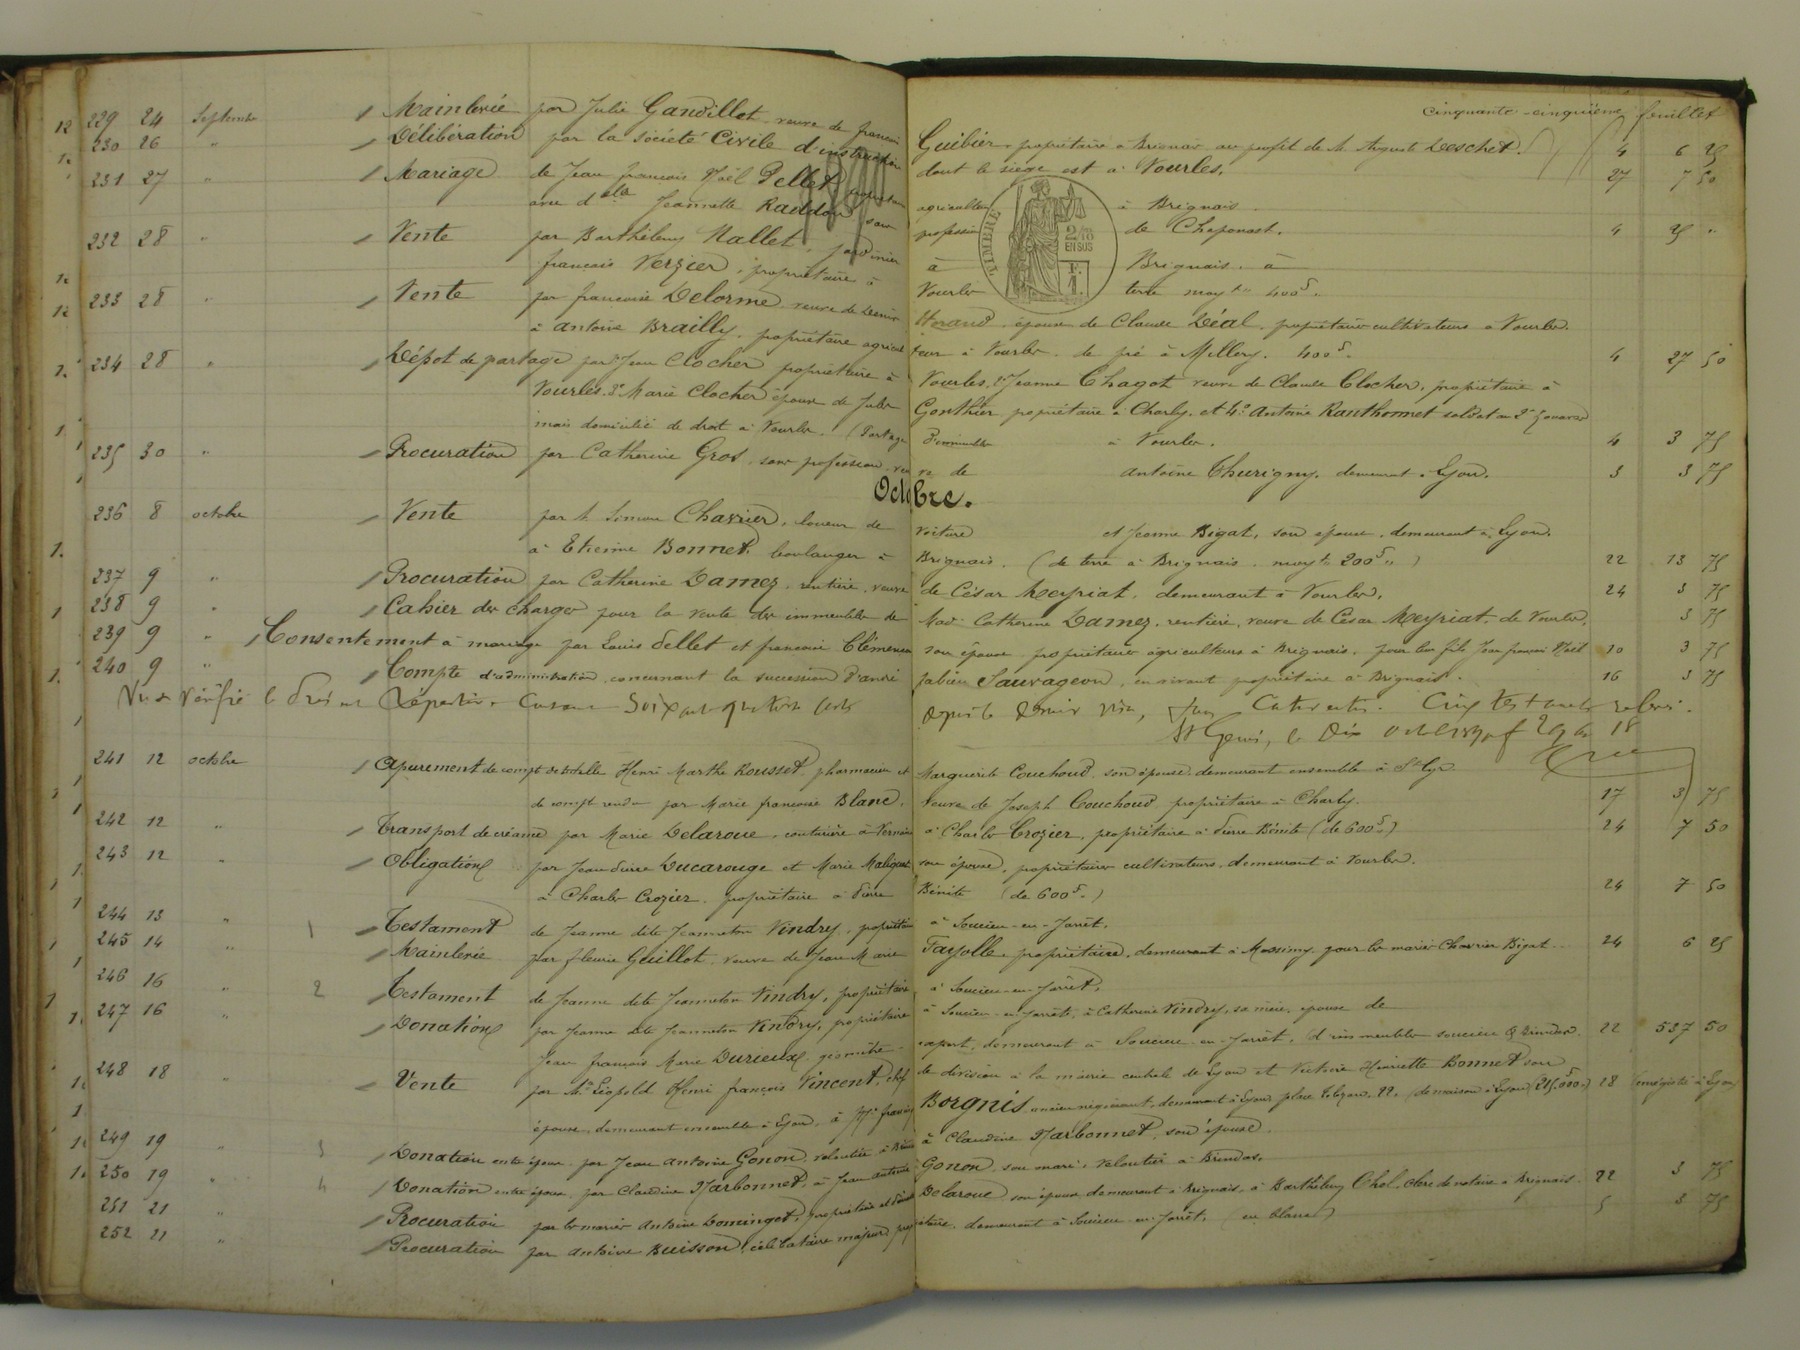 cinquante-cinquième feuillet
229 24 Septembre Mainlevée par Julie Gandillot, veuve de francois Guibier, propriétaire à Brignais au profit de M. Auguste Deschet. 4 6 25
230 26 " Délibération par la société Civile d'instruction dont le siège est à Vourles. 27 7 50
231 27 " Mariage de Jean francois Noël Pellet agriculteur à Brignais
avec dlle Jeannette Raddon sans profession de Chaponost. 4 25 "
232 28 " Vente par Barthélemy Nallet, jardinier à Brignais. à
francois Verzier, propriétaire à Vourles terre moyt 400f.
233 28 " Vente par francoise Delorme veuve de Denis Morand, épouse de Claude Déal, propriétaires cultivateurs à Vourles.
à Antoine Brailly, propriétaire agriculteur à Vourles. de pré à Millery. 400f. 4 27 50
234 28 " Dépot de partage par Jean Clocher propriétaire à Vourles, 2° Jeanne Chagot veuve de Claude Clocher, propriétaire à
Vourles. 3° Marie Clocher épouse de Jules Gonthier propriétaire à Charly. et 4° Antoine Ranthonnet soldat au 2e
mais domicilié de droit à Vourles. (Partage à Vourles. 4 3 75
235 30 " Procuration par Catherine Gros, sans profession, veuve de Antoine Thurigny, demeurant à Lyon. 3 3 75
Octobre.
236 8 octobre Vente par Simon Chavrier, loueur de voiture et Jeanne Bigat, son épouse, demeurant à Lyon.
à Etienne Bonnet, boulanger à Brignais. (de terre à Brignais. moyt 200f.) 22 13 75
237 9 " Procuration par Catherine Damez, rentière, veuve de César Meyriat, demeurant à Vourles. 24 3 75
238 9 " Cahier des charges pour la vente des immeubles de Mad. Catherine Damez, rentière, veuve de César Meyriat, de Vourles. 3 75
239 9 " Consentement à mariage par Louis Pellet et francoise Clémençon son épouse propriétaires agriculteurs à Brignais. pour leur fils Jean françois Noël 10 3 75
240 9 " Compte d'administration, concernant la succession d'André fabien Sauvageon, en vivant propriétaire à Brignais. 16 3 75
Vu & Vérifié le Présent Répertoire depuis le dernier visa,
St Genis, le Dix
241 12 octobre Apurement de compte de tutelle Henri Marthe Rousset, pharmacien et Marguerite Couchoud, son épouse, demeurant ensemble à St Cyr
de compte rendu par Marie francoise Blanc, Veuve de Joseph Couchoud, propriétaire à Charly. 17 3 75
242 12 " Transport de créance par Marie Delaroue, couturière à Vernaison à Charles Crozier, propriétaire à Pierre Bénite (de 600f.) 24 7 50
243 12 " Obligation par Jean Pierre Ducarouge et Marie son épouse, propriétaires cultivateurs, demeurant à Vourles.
à Charles Crozier, propriétaire à Pierre Bénite (de 600f.) 24 7 50
244 13 " 1 Testament de Jeanne dite Jeanneton Vindry, propriétaire à Soucieu-en-Jarrêt.
245 14 " Mainlevée par fleurie Guillot, veuve de Jean Marie Fayolle, propriétaire, demeurant à Messimy. pour les mariés Chavrier Bigat. 24 6 25
246 16 " 2 Testament de Jeanne dite Jeanneton Vindry, propriétaire à Soucieu-en-Jarrêt.
247 16 " Donation par Jeanne dite Jeanneton Vindry, propriétaire à Soucieu-en-Jarrêt, à Catherine Vindry, sa nièce, épouse de
Jean françois Marie Durieux, géomètre-expert, demeurant à Soucieu-en-Jarrêt, (d'immeubles Soucieu & Brindas. 22 537 50
248 18 " Vente par Mr Léopold Henri françois Vincent, chef de division à la mairie centrale de Lyon et Victoire Henriette Bonnet son
épouse, demeurant ensemble à Lyon, à Mr francois Borgnis, ancien négociant, demeurant à Lyon place Tolozan, 22, (de maison à Lyon) (215,000f.) 28 (enregistré à Lyon)
249 19 " 3 Donation entre époux par Jean Antoine Gonon, veloutier à Brindas à Claudine Narbonnet, son épouse.
250 19 " 4 Donation entre époux, par Claudine Narbonnet, à Jean Antoine Gonon, son mari, Veloutier à Brindas.
251 21 " Procuration par les mariés Antoine Dominget, propriétaire et Delaroue, son épouse, demeurant à Brignais, à Barthélemy Chol, clerc de notaire à Brignais. 22 3 75
252 21 " Procuration par Antoine Buisson, célibataire majeur, propriétaire, demeurant à Soucieu-en-Jarrêt, (en blanc) 5 3 75
TIMBRE
2/10
EN SUS
F.
1.